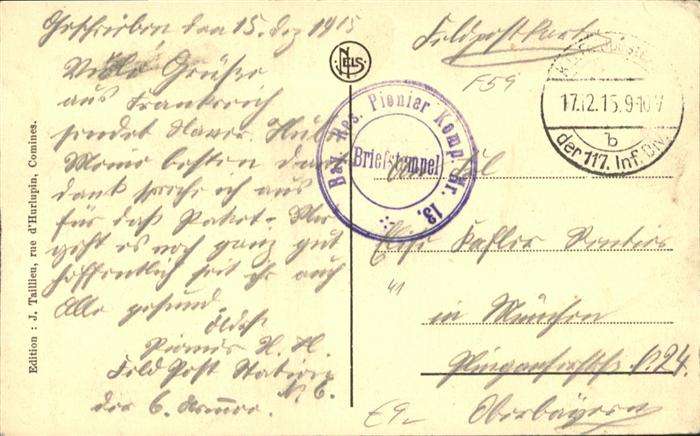 Geschrieben den 15. Dez 1915
Viele Grüße
aus Frankreich
sendet Xaver
Meine besten
dank spreche ich aus
für das Paket. Mir
geht es noch ganz gut
hoffentlich seit ihr auch
Alle gesund.
Pionier X. H.
Feld Post Station
N 6.
der 6. Armee.
Edition : J. Taillieu, rue d'Hurlupin, Comines.
NELS
Bay. Res. Pionier Komp. Nr. 13.
Briefstempel
Feldpostkarte
F59
17.12.15.9-10V
b
der 117. Inf. Div.
in München
No. 24.
Oberbayern